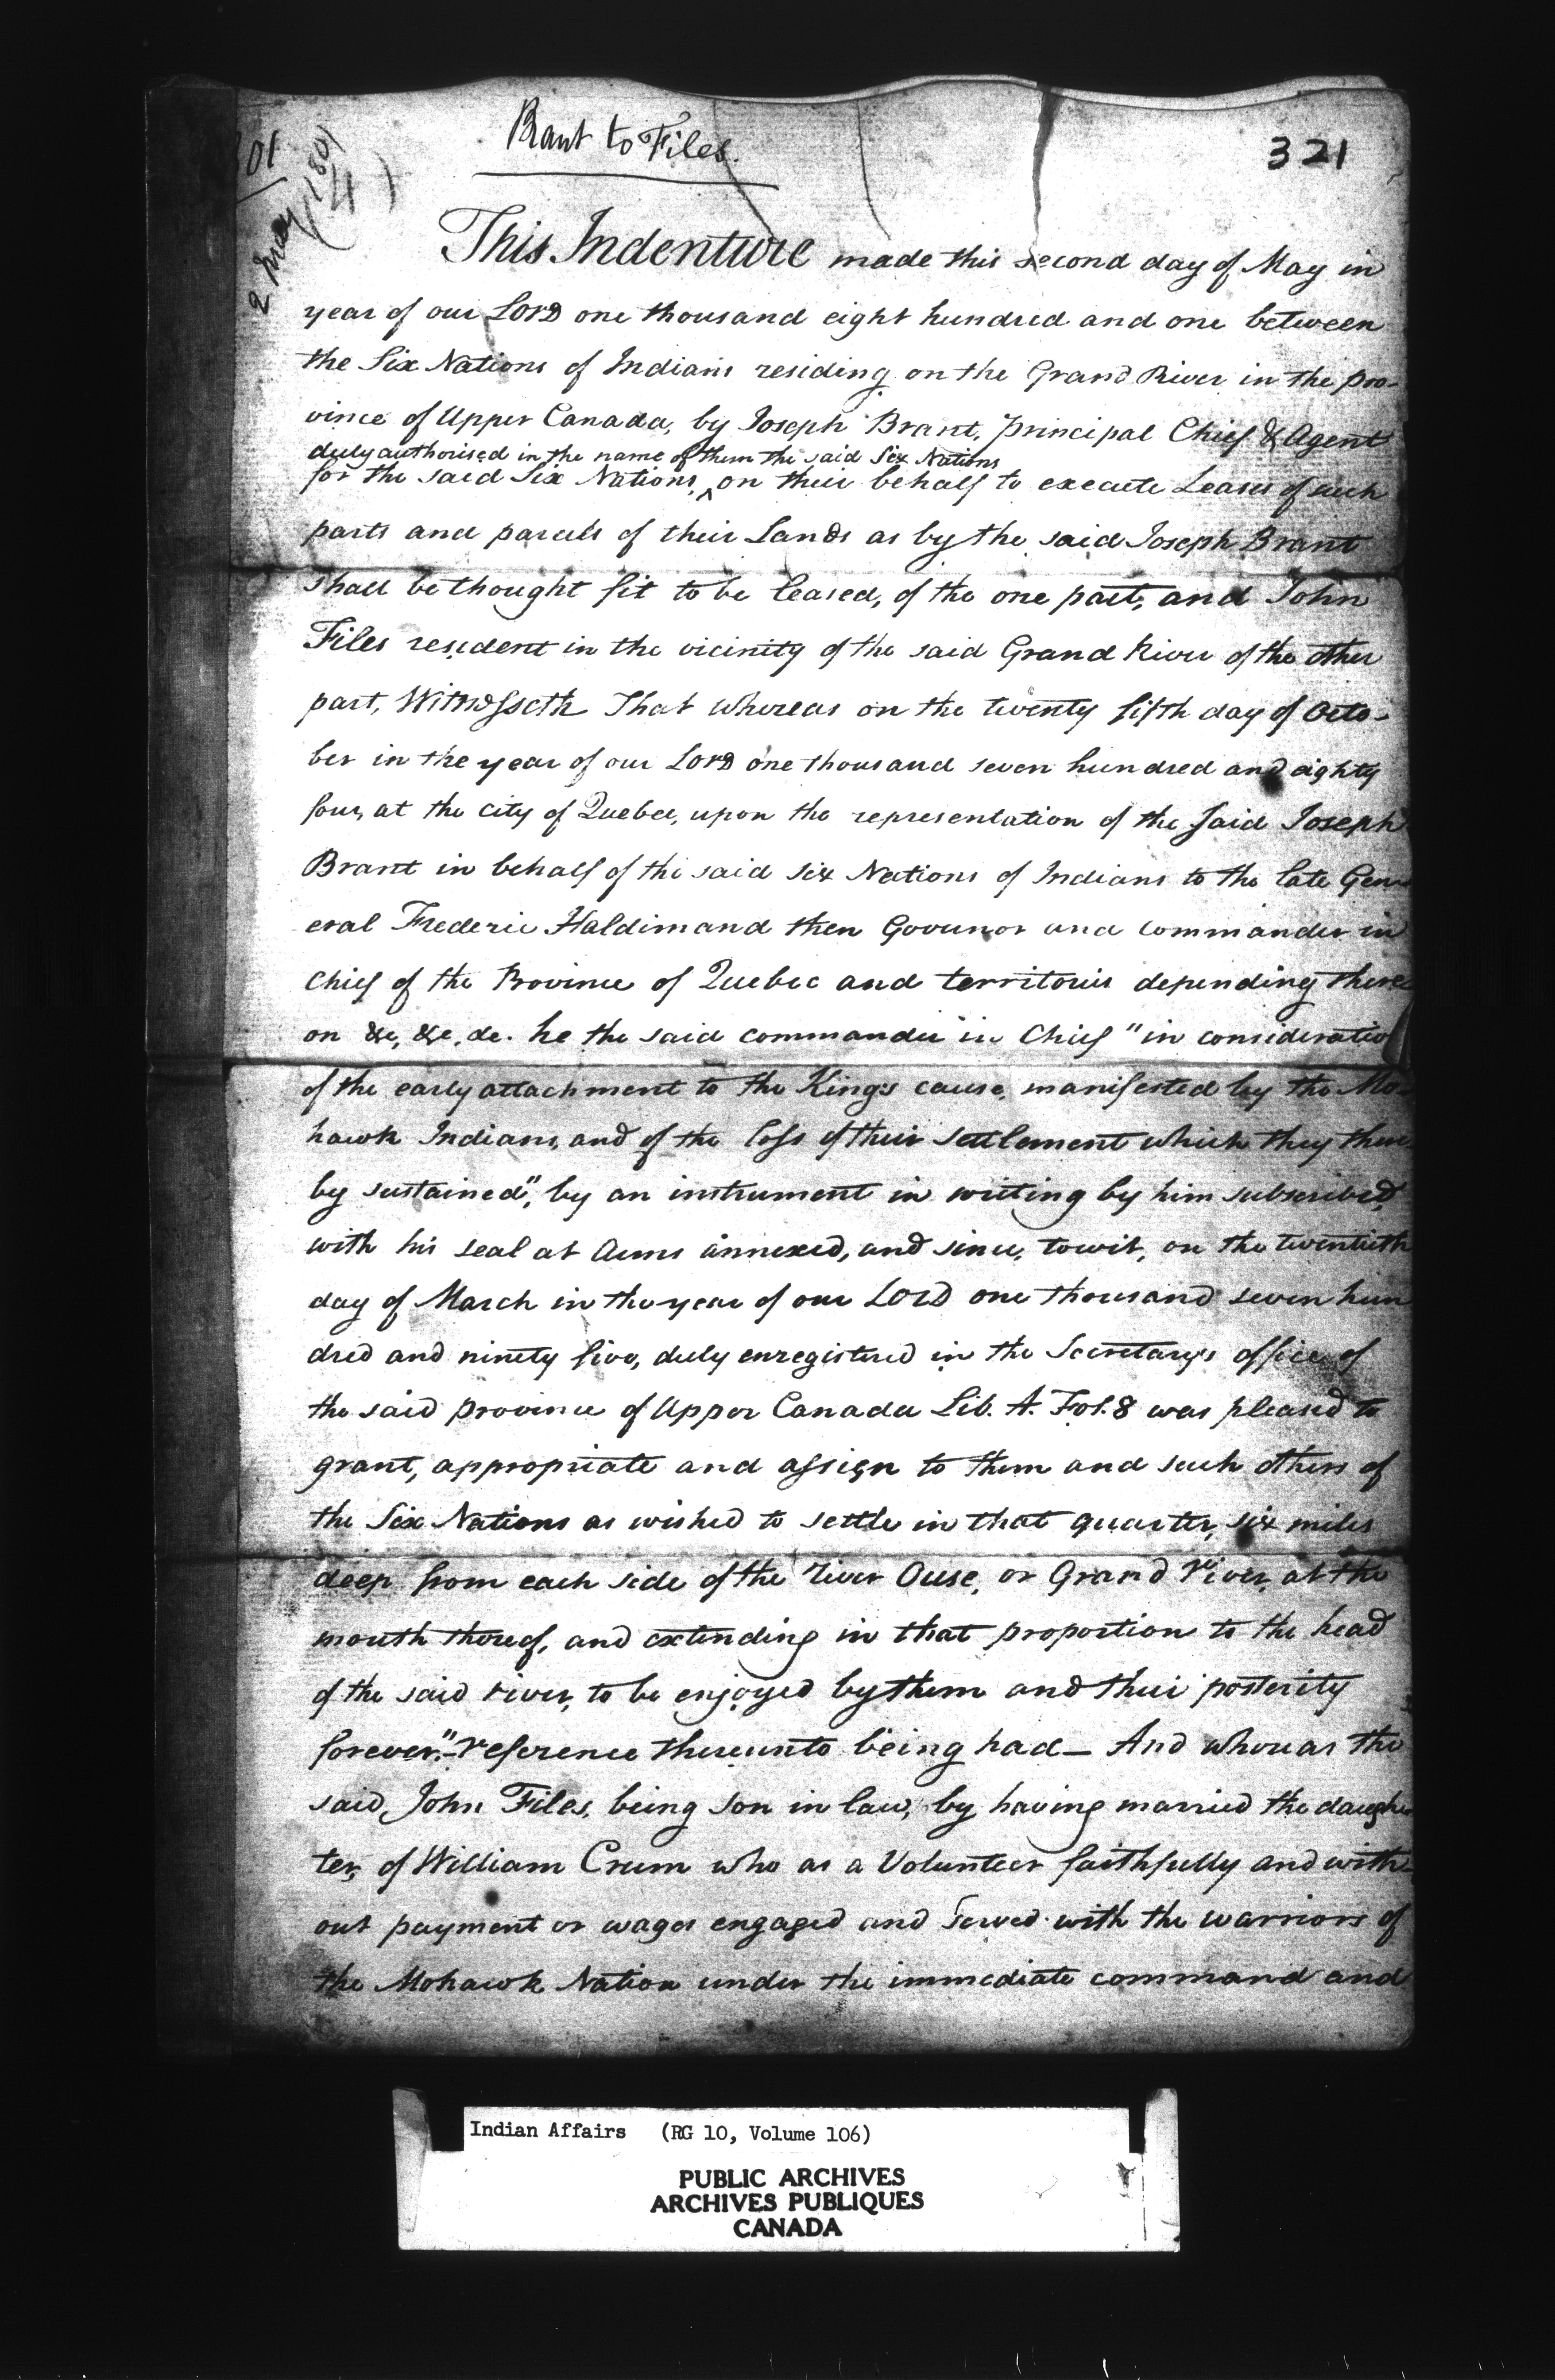 Brant to Files.
321
01
2 May 1801
4)
This Indenture made this second day of May in
year of our Lord one thousand eight hundred and one between
the Six Nations of Indians residing on the Grand River in the pro-
vince of Upper Canada, by Joseph Brant, Principal Chief & Agent
duly authorised in the name of them the said Six Nations
for the said Six Nations, ^ on their behalf to execute Leases of such
parts and parcels of their Lands as by the said Joseph Brant
shall be thought fit to be leased, of the one part, and John
Files resident in the vicinity of the said Grand River of the other
part, Witnesseth That whereas on the twenty fifth day of Octo-
ber in the year of our Lord one thousand seven hundred and eighty
four, at the city of Quebec, upon the representation of the said Joseph
Brant in behalf of the said six Nations of Indians to the late Gen-
eral Frederic Haldimand then Governor and commander in
Chief of the Province of Quebec and territories depending there
on &c, &c, &c. he the said commander in Chief "in consideratio
of the early attachment to the King's cause, manifested by the Mo-
hawk Indians, and of the loss of their settlement which they there
by sustained", by an instrument in writing by him subscribed,
with his seal at Arms annexed, and since, towit, on the twentieth
day of March in the year of our Lord one thousand seven hun
dred and ninety five, duly enregistered in the Secretary's office of
the said province of Upper Canada Lib. A. Fol. 8 was pleased to
grant, appropriate and assign to them and such others of
the Six Nations as wished to settle in that quarter, six miles
deep from each side of the river Ouse, or Grand river, at the
mouth thereof, and extending in that proportion to the head
of the said river, to be enjoyed by them and their posterity
forever."- reference thereunto being had— And whereas the
said John Files, being son in law, by having married the daugh
ter, of William Crum who as a Volunteer faithfully and with-
out payment or wages engaged and served with the warriors of
the Mohawk Nation under the immediate command and
Indian Affairs (RG 10, Volume 106)
PUBLIC ARCHIVES
ARCHIVES PUBLIQUES
CANADA